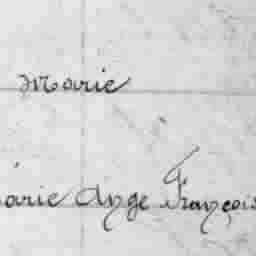 Marie
Marie Ange François